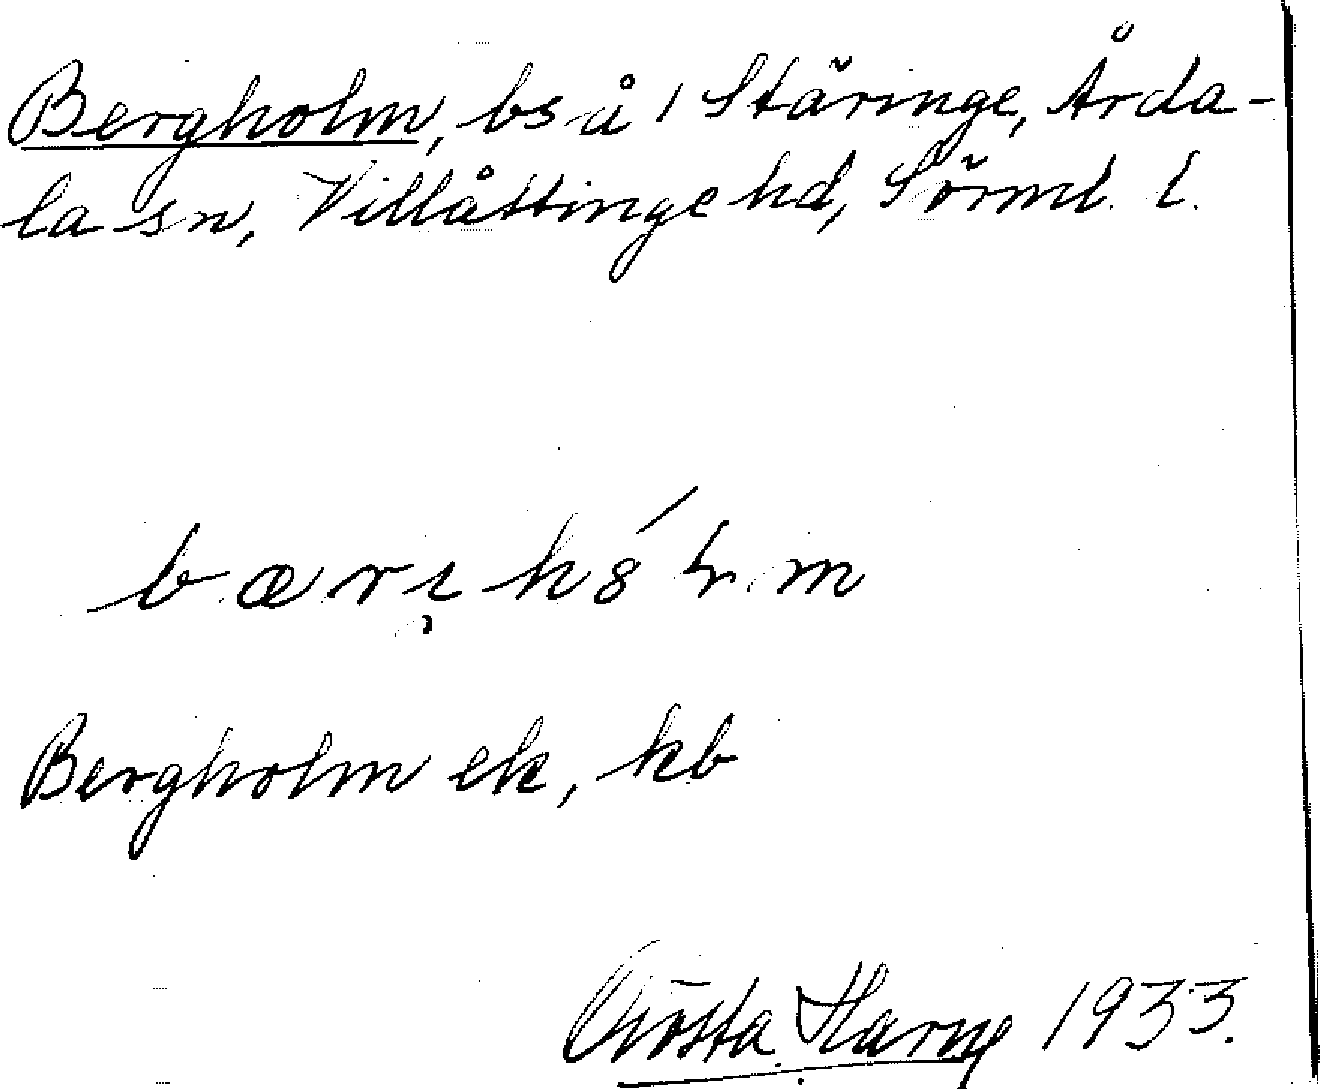 Bergholm, bs å 1 Stäringe, Årda-
la sn, Villåttinge hd, Sörml. l.
Bergholm ek, kb
Gösta Harne 1933.